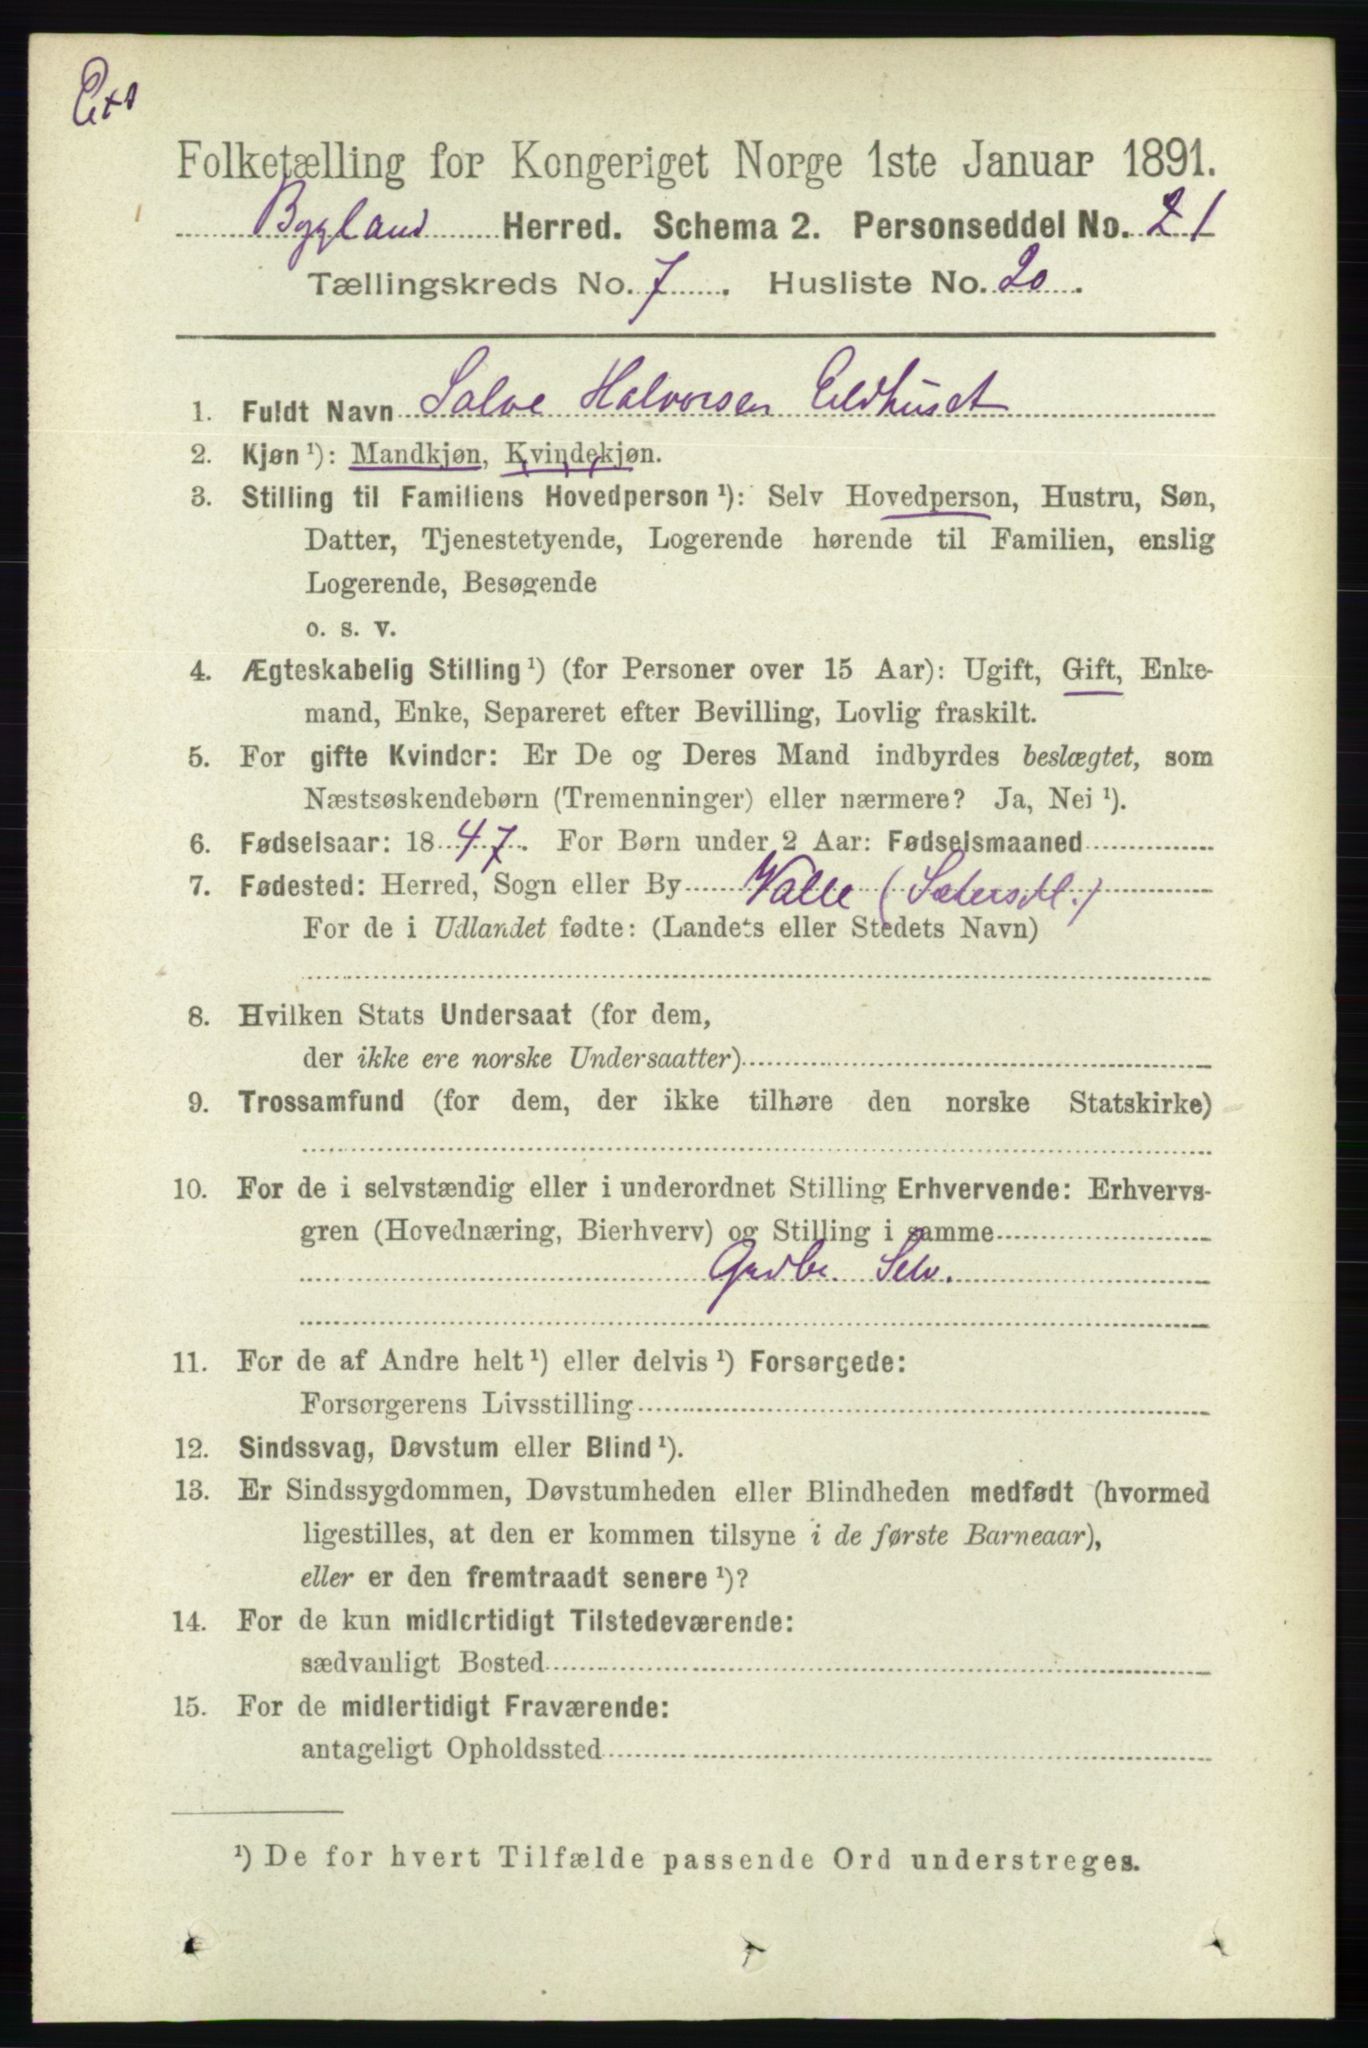 Folketælling for Kongeriget Norge 1ste Januar 1891.
Bygland Herred. Schema 2. Personseddel No. 21
Tællingskreds No. 7. Husliste No. 20.
1. Fuldt Navn Salve Halvorsen Eldhuset
2. Kjøn ¹): Mandkjøn, Kvindekjøn.
3. Stilling til Familiens Hovedperson ¹): Selv Hovedperson, Hustru, Søn,
Datter, Tjenestetyende, Logerende hørende til Familien, enslig
Logerende, Besøgende
o. s. v.
4. Ægteskabelig Stilling ¹) (for Personer over 15 Aar): Ugift, Gift, Enke-
mand, Enke, Separeret efter Bevilling, Lovlig fraskilt.
5. For gifte Kvinder: Er De og Deres Mand indbyrdes beslægtet, som
Næstsøskendebørn (Tremenninger) eller nærmere? Ja, Nei ¹).
6. Fødselsaar: 1847. For Børn under 2 Aar: Fødselsmaaned
7. Fødested: Herred, Sogn eller By Valle (Sætersd.)
For de i Udlandet fødte: (Landets eller Stedets Navn)
8. Hvilken Stats Undersaat (for dem,
der ikke ere norske Undersaatter)
9. Trossamfund (for dem, der ikke tilhøre den norske Statskirke)
10. For de i selvstændig eller i underordnet Stilling Erhvervende: Erhvervs-
gren (Hovednæring, Bierhverv) og Stilling i samme
Gadbr. Selv.
11. For de af Andre helt ¹) eller delvis ¹) Forsørgede:
Forsørgerens Livsstilling
12. Sindssvag, Døvstum eller Blind ¹).
13. Er Sindssygdommen, Døvstumheden eller Blindheden medfødt (hvormed
ligestilles, at den er kommen tilsyne i de første Barneaar),
eller er den fremtraadt senere ¹)?
14. For de kun midlertidigt Tilstedeværende:
sædvanligt Bosted
15. For de midlertidigt Fraværende:
antageligt Opholdssted
¹) De for hvert Tilfælde passende Ord understreges.